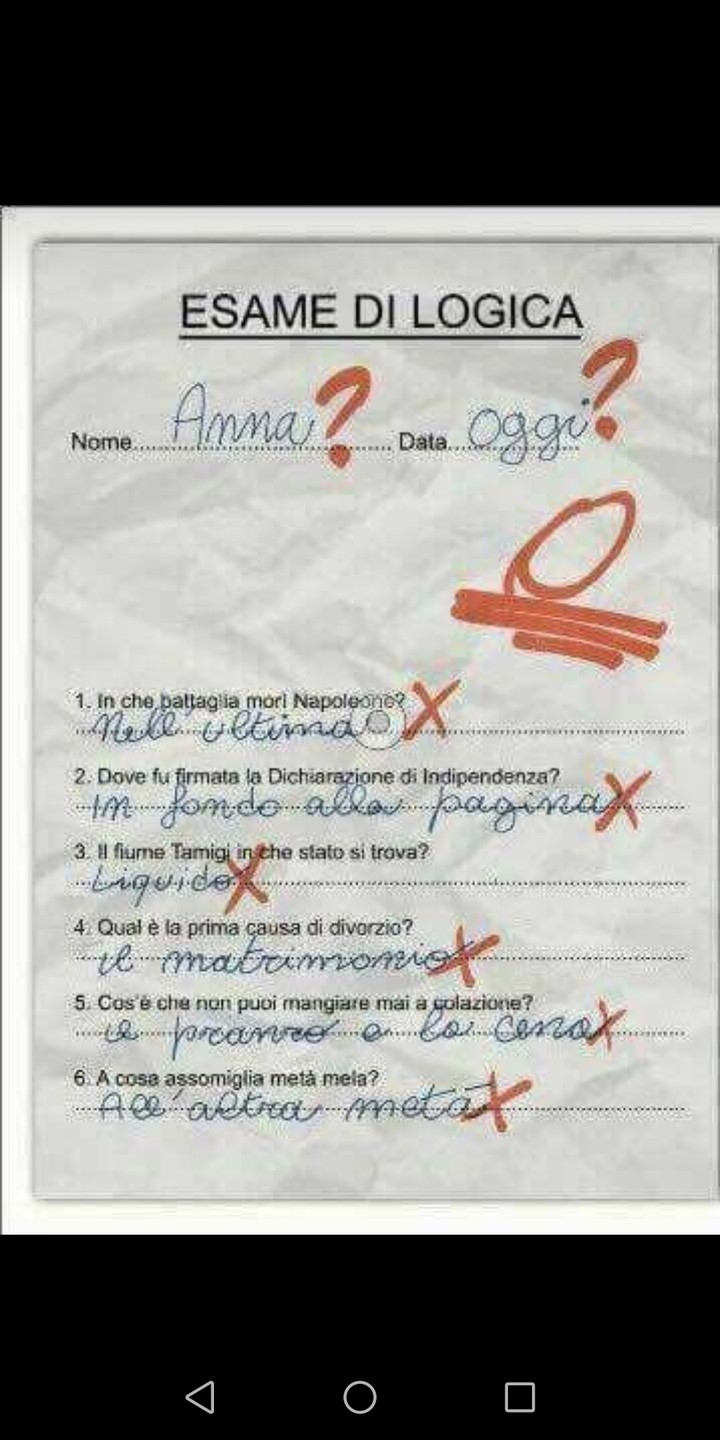 ESAME DI LOGICA
Nome Anna ? Data oggi ?
0
1. In che battaglia morì Napoleone? X
Nell'ultima
2. Dove fu firmata la Dichiarazione di Indipendenza? X
In fondo alla pagina
3. Il fiume Tamigi in che stato si trova? X
Liquido
4. Qual è la prima causa di divorzio? X
il matrimonio
5. Cos'è che non puoi mangiare mai a colazione? X
il pranzo e la cena
6. A cosa assomiglia metà mela? X
All'altra metà